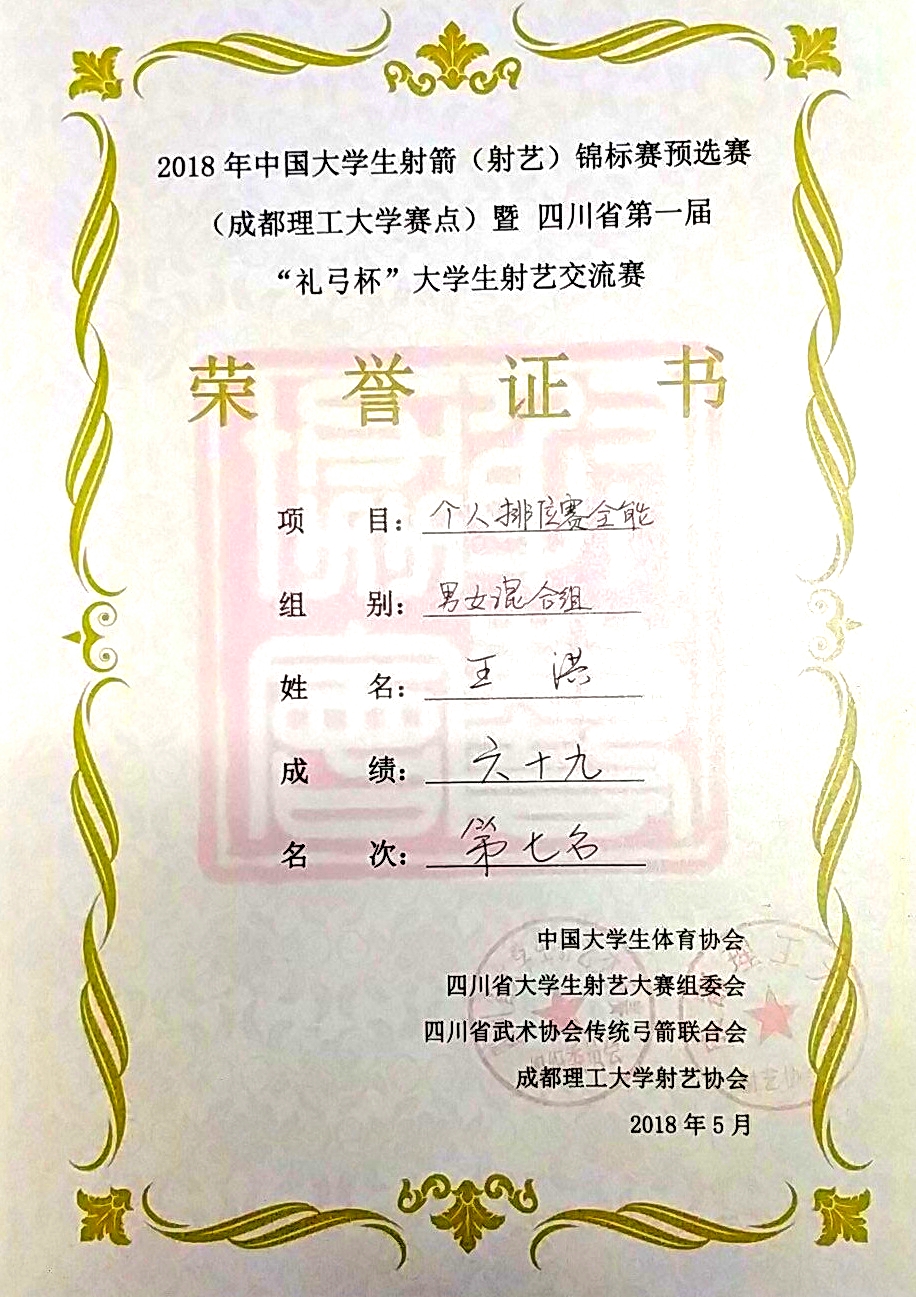 2018年中国大学生射箭（射艺）锦标赛预选赛
（成都理工大学赛点）暨 四川省第一届
“礼弓杯”大学生射艺交流赛
荣誉证书
项目：个人排位赛全能
组别：男女混合组
姓名：王洪
成绩：六十九
名次：第七名
中国大学生体育协会
四川省大学生射艺大赛组委会
四川省武术协会传统弓箭联合会
成都理工大学射艺协会
2018年5月